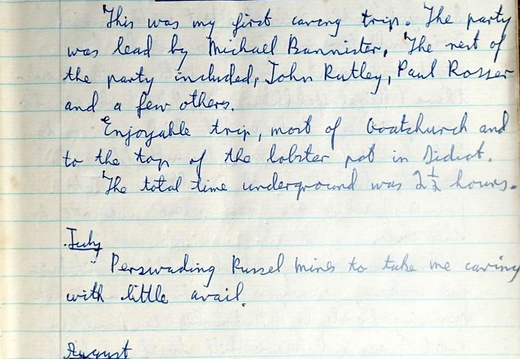 This was my first caving trip. The party
was lead by Michael Bannister. The rest of
the party included, John Rutley, Paul Rosser
and a few others.
Enjoyable trip, most of Goatchurch and
to the top of the lobster pot in Sidcot.
The total time underground was 2½ hours.
July
Perswading Russel Mines to take me caving
with little avail.
August